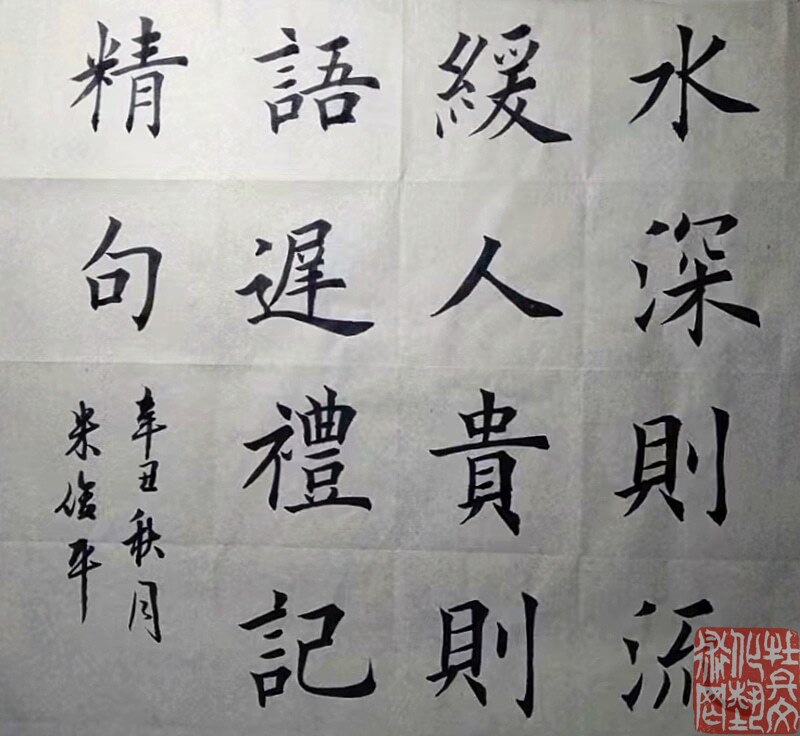 水深則流
緩人貴則
語遲禮記
精句
辛丑秋月
米俊平